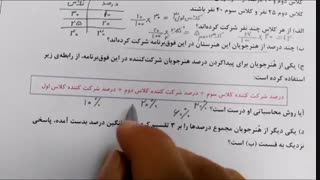 کلاس دوم ۲۵ نفر و کلاس سوم ۴۰ نفر باشند.
الف) از هر کلاس چند نفر شرکت کرده‌اند؟
ب) چند درصد از هنرجویان این هنرستان در این فوق‌برنامه شرکت کرده‌اند؟
ج) یکی از هنرجویان برای پیدا کردن درصد هنرجویان شرکت‌کننده در این فوق‌برنامه، از رابطه‌ی زیر
استفاده کرده است:
درصد شرکت کننده کلاس سوم + درصد شرکت کننده کلاس دوم + درصد شرکت کننده کلاس اول
۱۰٪ ۲۰٪ ۳۰٪
۶۰٪
آیا روش محاسباتی او درست است؟
د) یکی دیگر از هنرجویان مجموع درصدها را بر ۳ تقسیم کرد میانگین درصد بدست آمده، پاسخی
نزدیک به قسمت (ب) است؟